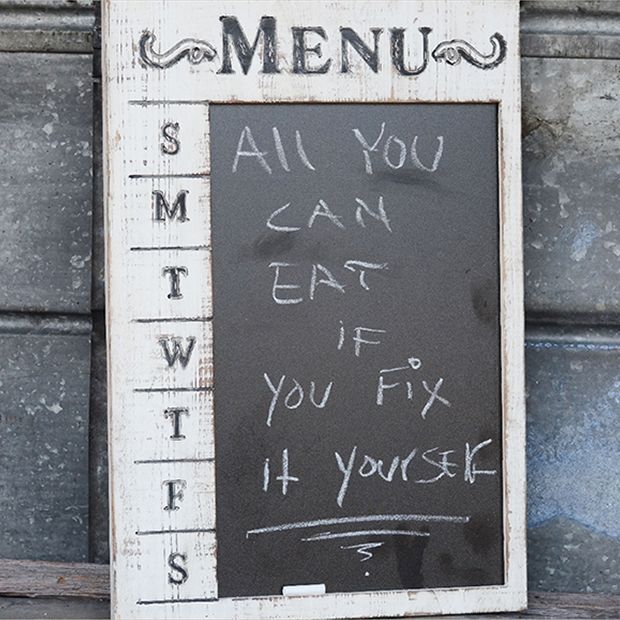 MENU
S
M
T
W
T
F
S
All YOU
CAN
EAT
iF
YOU Fix
it YOURSElF